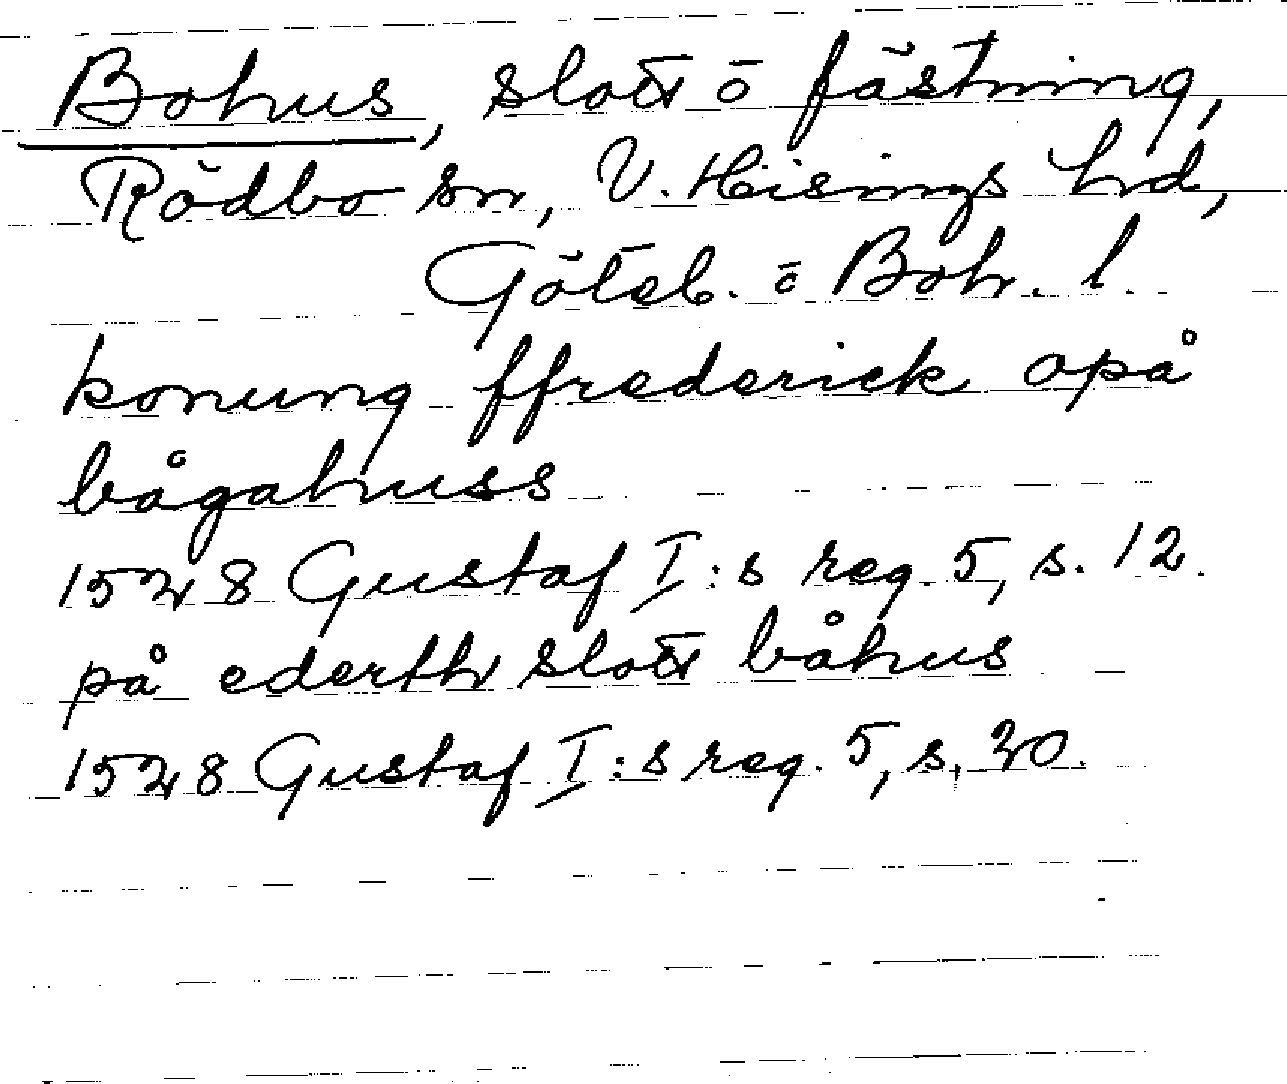 Bohus, slott ō fästning,
Rödbo sn, V. Hisings hd,
Göteb. ō Boh. l.
konung ffrederick opå
bågahuss
1528 Gustaf I:s reg. 5, s. 12.
på ederth slott båhus
1528 Gustaf I:s reg. 5, s. 20.